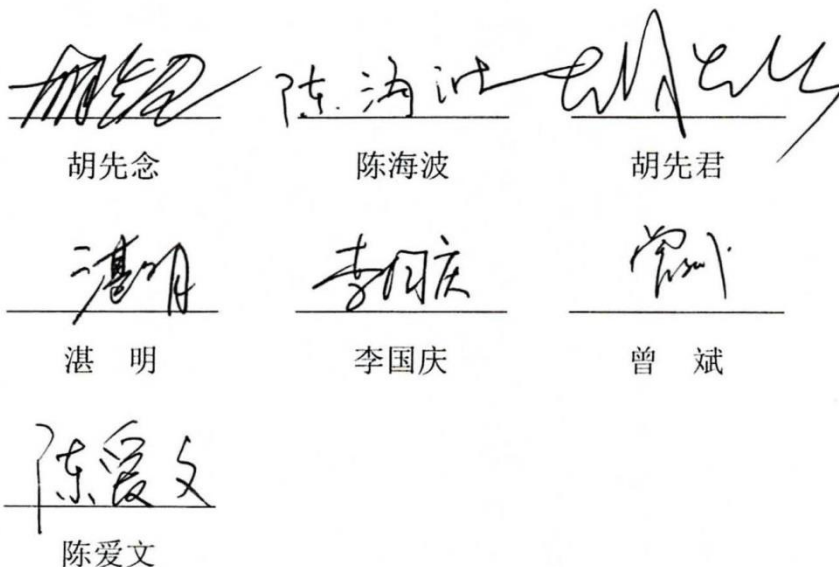 胡先念 陈海波 胡先君
胡先念 陈海波 胡先君
湛明 李国庆 曾斌
湛 明 李国庆 曾 斌
陈爱文
陈爱文